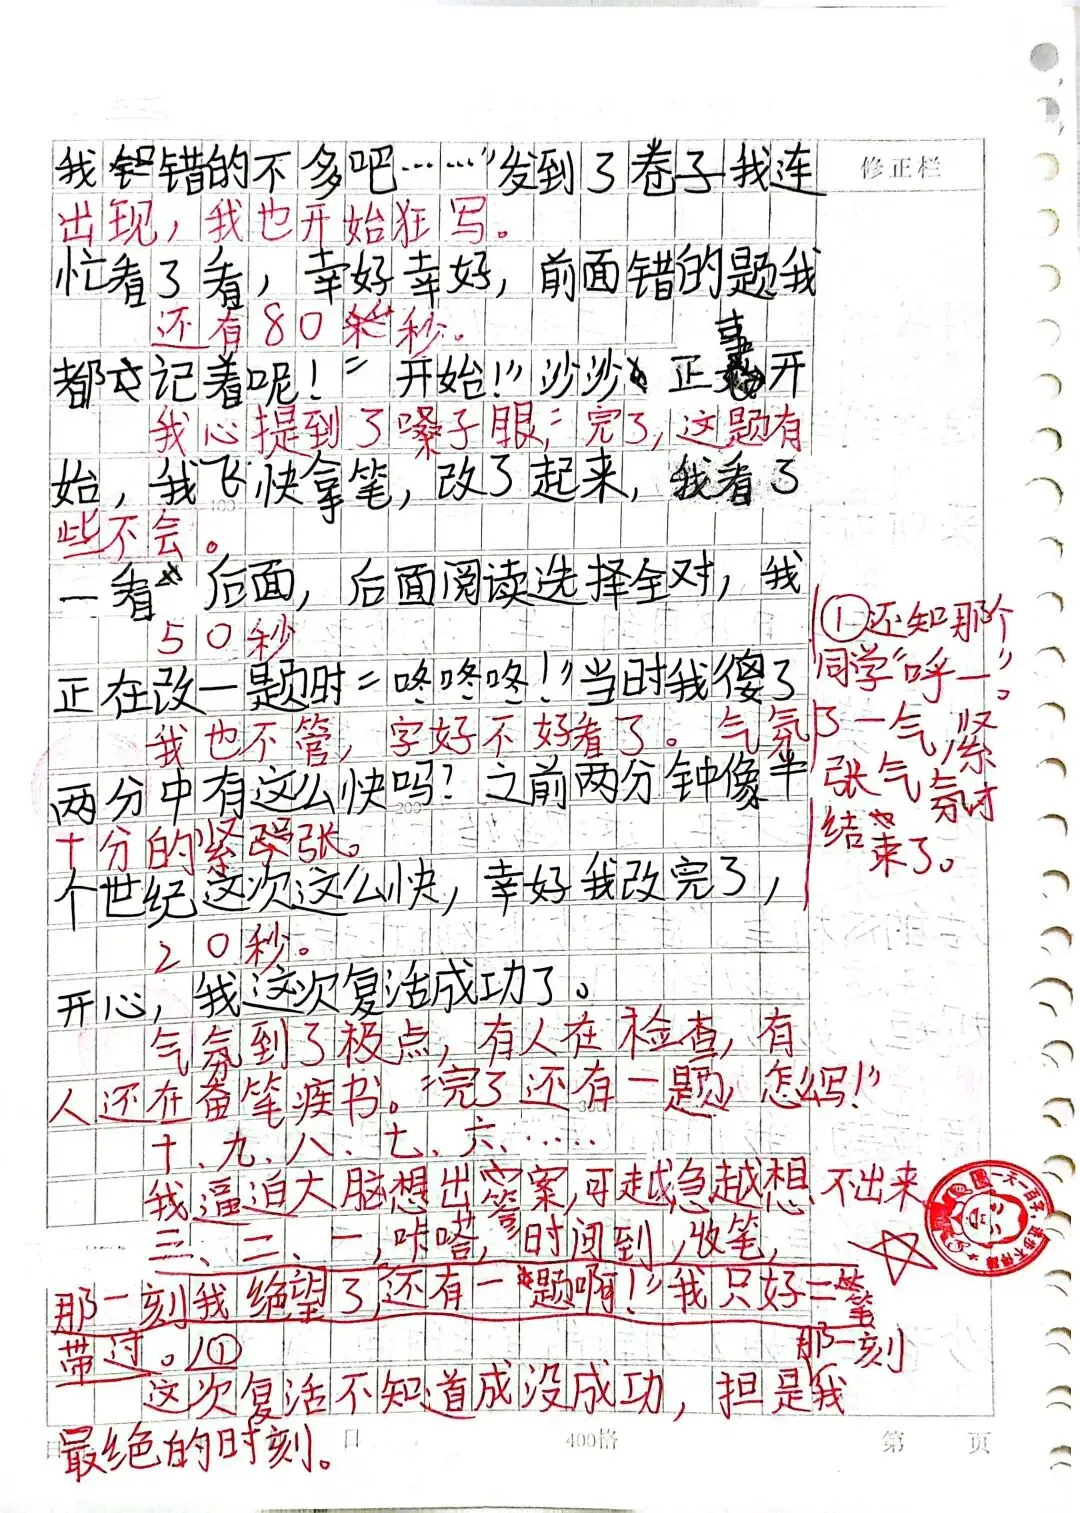 我错的不多吧……”发到了卷子我连
修正栏
出现，我也开始狂写。
忙看了看，幸好幸好，前面错的题我
还有80秒。
都记着呢！“开始！”沙沙正式开
我心提到了嗓子眼，“完了，这题有
始，我飞快拿笔，改了起来，我看了
些不会。
一看后面，后面阅读选择全对，我
50秒
正在改一题时“咚咚咚！”当时我傻了
我也不管，字好不好看了。气氛
两分中有这么快吗？之前两分钟像半
十分的紧张。
个世纪这次这么快，幸好我改完了，
20秒。
开心，我这次复活成功了。
气氛到了极点，有人在检查，有
人还在奋笔疾书。“完了还有一题，怎么写！”
十、九、八、七、六……
我逼迫大脑想出答案，可越急越想不出来
三、二、一，咔嗒，时间到，收笔，
那一刻我绝望了，还有一题啊！”我只好一笔
带过。①
那一刻
这次复活不知道成没成功，担是我
最绝的时刻。
①还知那个
同学“呼一”
了一气，紧
张气氛才
结束了。
400格
第 页